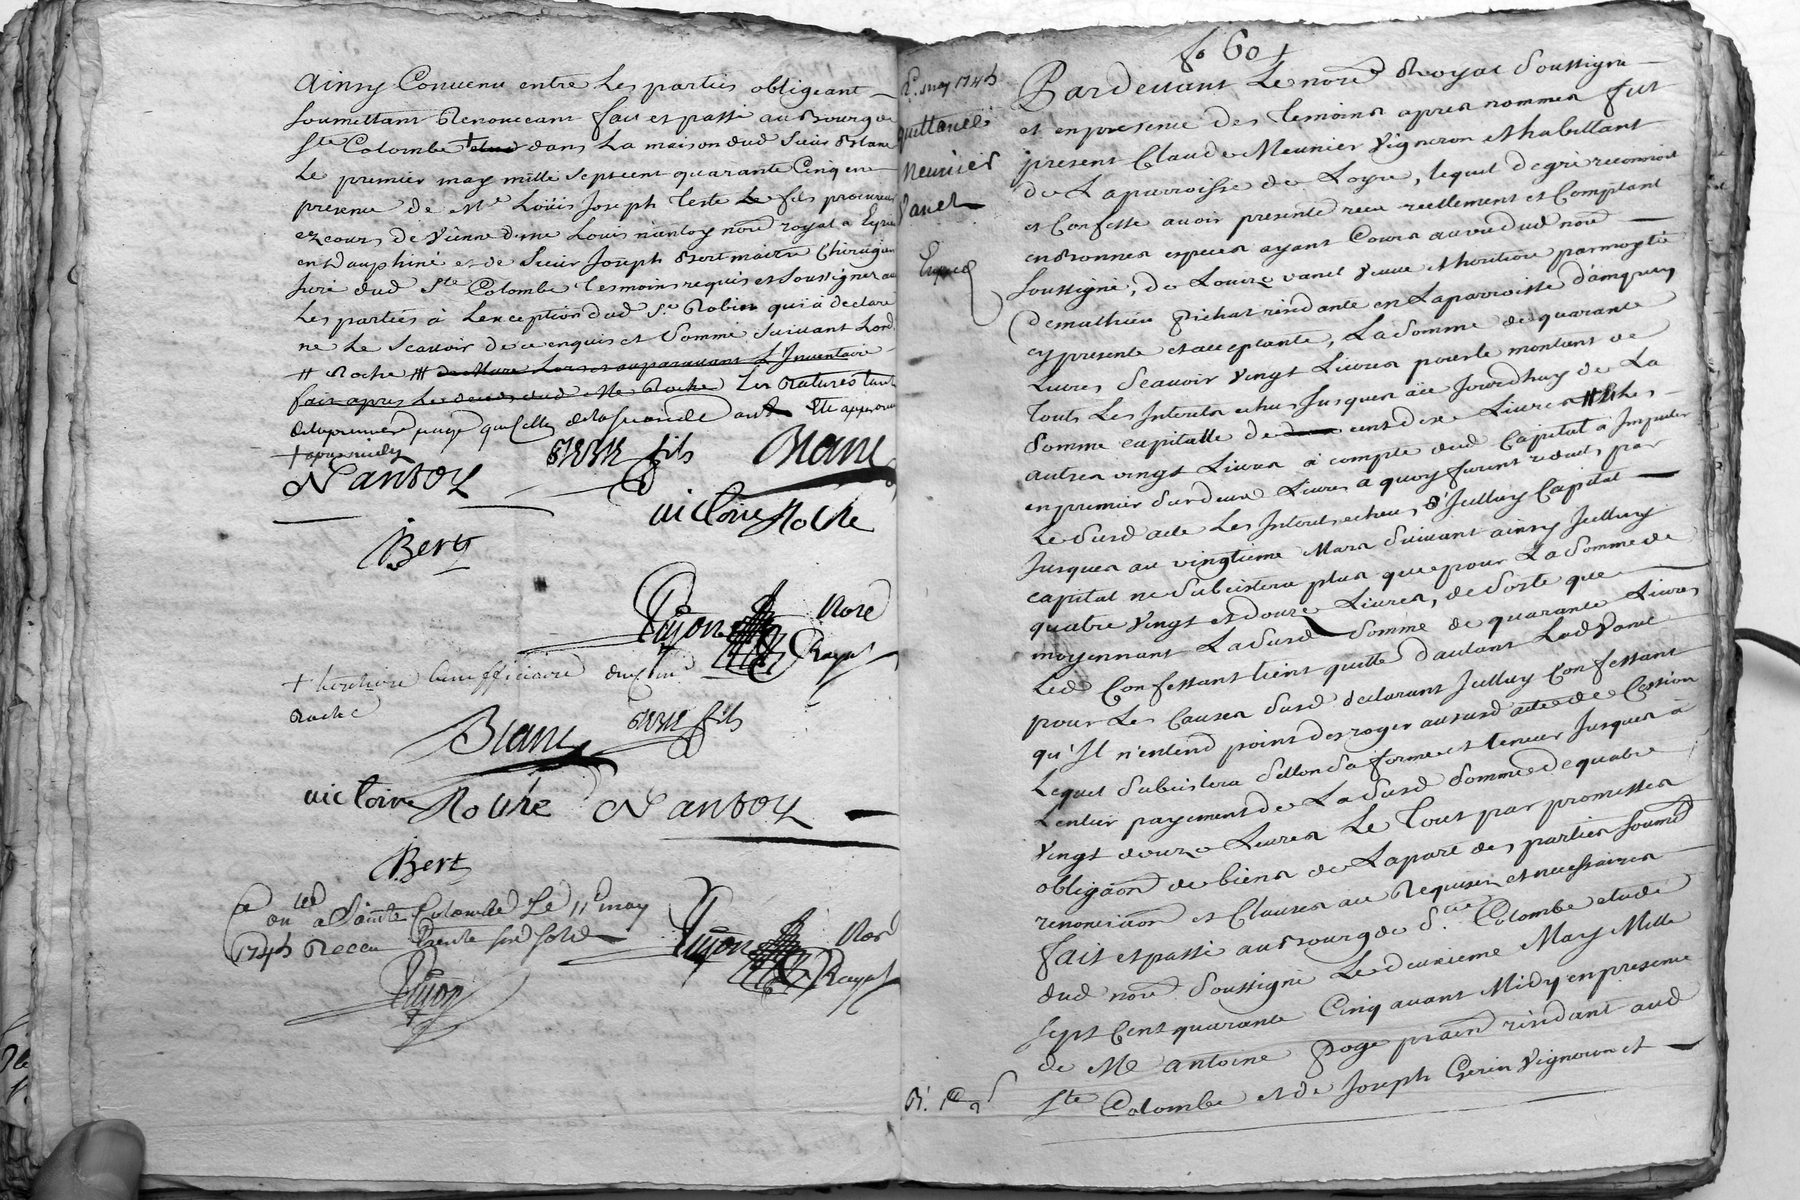 Ainsy Convenu entre Les parties obligeant
soumettant Renonceant fait et passé au Bourg de
Ste Colombe dans La maison dud sieur Blanc
Le premier may mille sept cent quarante Cinq en
presence de Me Loüis Joseph Teste Le fils procureur
ez cours de Vienne de Me Louis nantoy nore royal a
en Dauphiné et de sieur Joseph Bert maitre Chirurgien
Juré dud Ste Colombe Tesmoins requis et soussignez av
Les parties à Lexception dud Sr Robin qui à declaré
ne Le scavoir de ce enquis et sommé suivant Lord
# Roche ## auparavant L'Inventaire
fait apres Le deces dud Me Roche Les Ratures tant
de la premiere page que Celles de la seconde
+ apres midy
Nantoy
teste fils
Blanc
victoire Roche
Bert
Pijon
Nore
Royal
+ heritiere beneficiaire dud
Roche
Blanc
teste fils
victoire Roche
Nantoy
Bert
Con
lé a Sainte Colombe Le 11e may
1745 Receu trente six sols
Pijon
Pijon
Nore
Royal
fo 60
2e may 1745
quittance
Meunier
Vanel
Par devant Le nore Royal soussigné
et en presence des temoins apres nommes fut
present Claude Meunier Vigneron et habittant
de La parroisse de Loyre, lequel de gré reconnoit
et Confesse avoir presentement receu reellement et Comptant
en Bonnes especes ayant Cours au veu dud nore
soussigné, de Louize vanel veuve et heritiere par moytié
de mathieu pichat residante en La parroisse d'ampuy
cy presente et acceptante, La somme de quarante
Livres, Scavoir vingt Livres pour le montant de
touts Les Interets echus Jusques à ce Jourdhuy de La
somme capitalle de cent dix Livres # Les
autres vingt Livres à compte dud Capital à Imputer
en premier sur deux Livres a quoy furent reduits par
Le susd acte Les Interets echeus, d'Icelluy Capital
Jusques au vingtieme Mars suivant ainsy Icelluy
capital ne subsistera plus que pour La somme de
quatre vingt et douze Livres, de sorte que
moyennant La susd somme de quarante Livres
Led Confessant tient quitte d'autant Lad Vanel
pour Les Causes susd declarant Icelluy Confessant
qu'Il n'entend point desroger au susd acte de Cession
Lequel subsistera sellon sa forme et teneur Jusques a
Lentier payement de La susd somme de quatre
vingt douze Livres Le tout par promesses
obligaon de biens de La part des parties soumis
renonciaon et Clauses au Requises et necessaires
fait et passé au Bourg de Ste Colombe etude
dud nore soussigné Le deuxieme May Mille
sept Cent quarante Cinq avant Midy en presence
de Me antoine poge praen residant aud
Ste Colombe et de Joseph Gerin Vigneron et